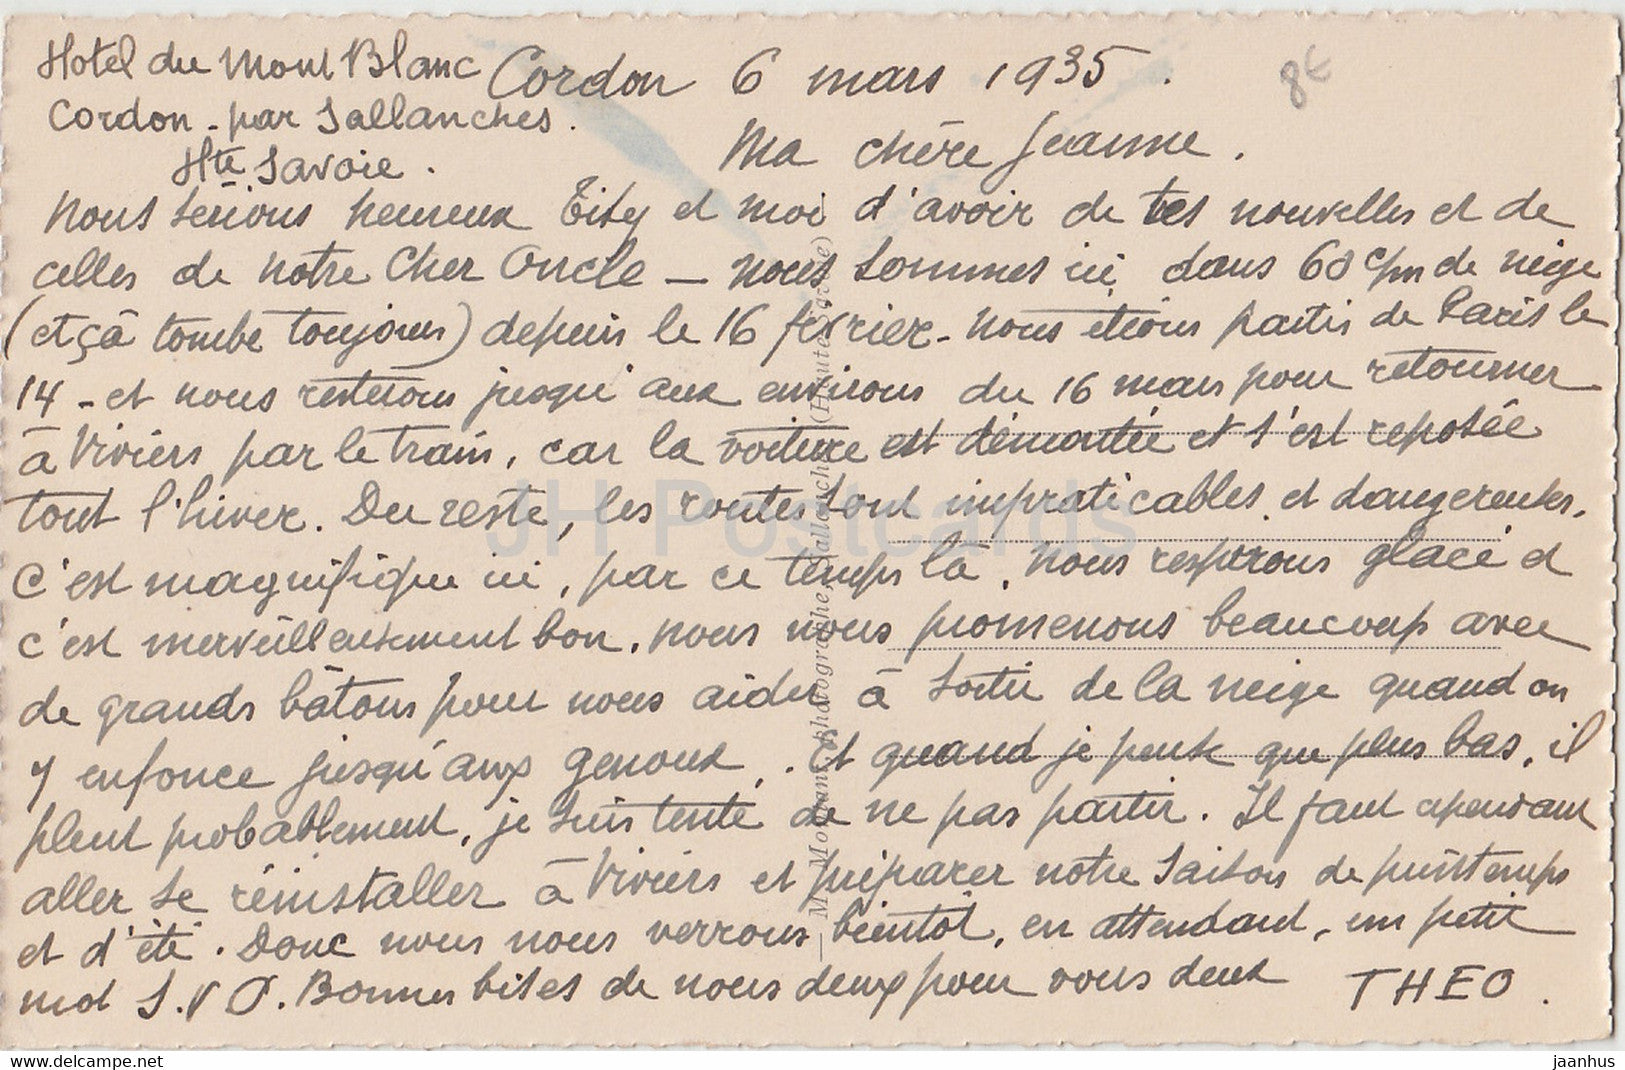 Hotel du Mont Blanc
Cordon - par Sallanches.
Hte Savoie.
Cordon 6 mars 1935.
8€
Ma chère Jeanne.
Nous serions heureux Tity et moi d'avoir de tes nouvelles et de
celles de notre Cher Oncle — nous sommes ici dans 60 c/m de neige
(et çà tombe toujours) depuis le 16 février - nous étions partis de Paris le
14 - et nous resterons jusqu'aux environs du 16 mars pour retourner
à Viviers par le train, car la voiture est démontée et s'est reposée
tout l'hiver. Du reste, les routes sont impraticables et dangereuses.
C'est magnifique ici, par ce temps là. Nous respirons glacé et
c'est merveilleusement bon. Nous nous promenons beaucoup avec
de grands bâtons pour nous aider à sortir de la neige quand on
y enfonce jusqu'aux genoux. Et quand je pense que plus bas, il
pleut probablement, je suis tenté de ne pas partir. Il faut cependant
aller se réinstaller à Viviers et préparer notre saison de printemps
et d'été. Donc nous nous verrons bientôt, en attendant, un petit
mot S.V.P. Bonnes bises de nous deux pour vous deux THEO.
Photographe, Sallanches (Haute-Savoie)
JH Postcards
hip-delcampe.net
jaanhus